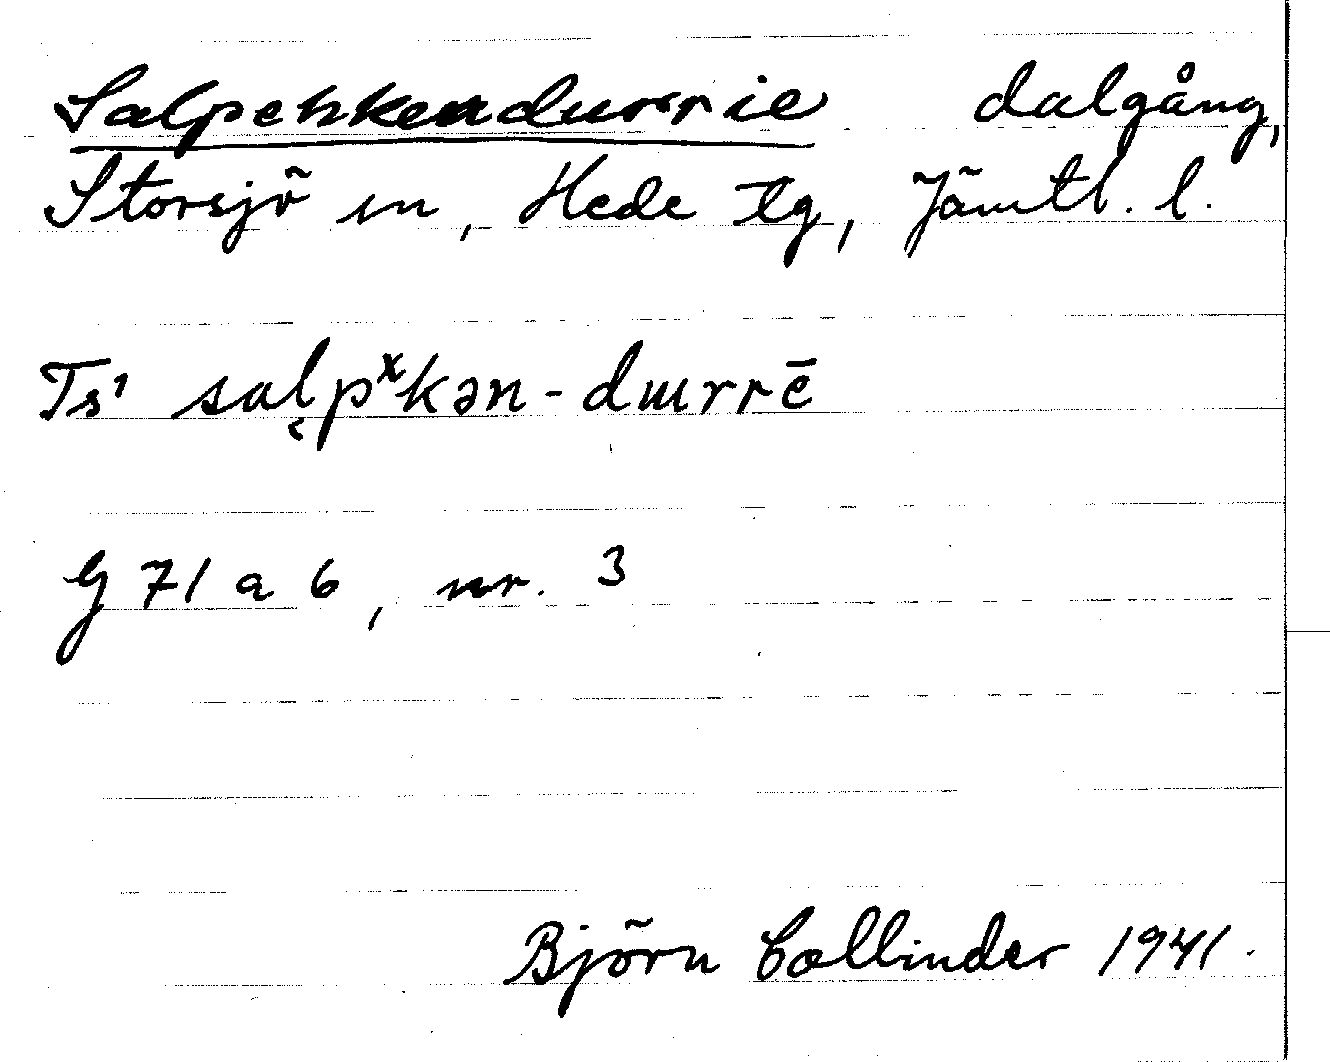 Salpehkendurrie dalgång,
Storsjö sn, Hede tg, Jämtl. l.
Ts¹ sal̜pˣkən-dɯrrē
G 71 a 6, nr. 3
Björn Collinder 1941.